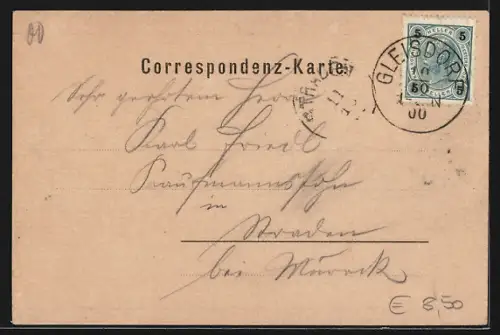 Correspondenz-Karte
GLEISDORF
10
50
00
5 HELLER 5
5 5
Sehr geehrten Herrn
Karl Friedl
Kaufmannssohn
in
Straden
bei Mureck
€ 8,50